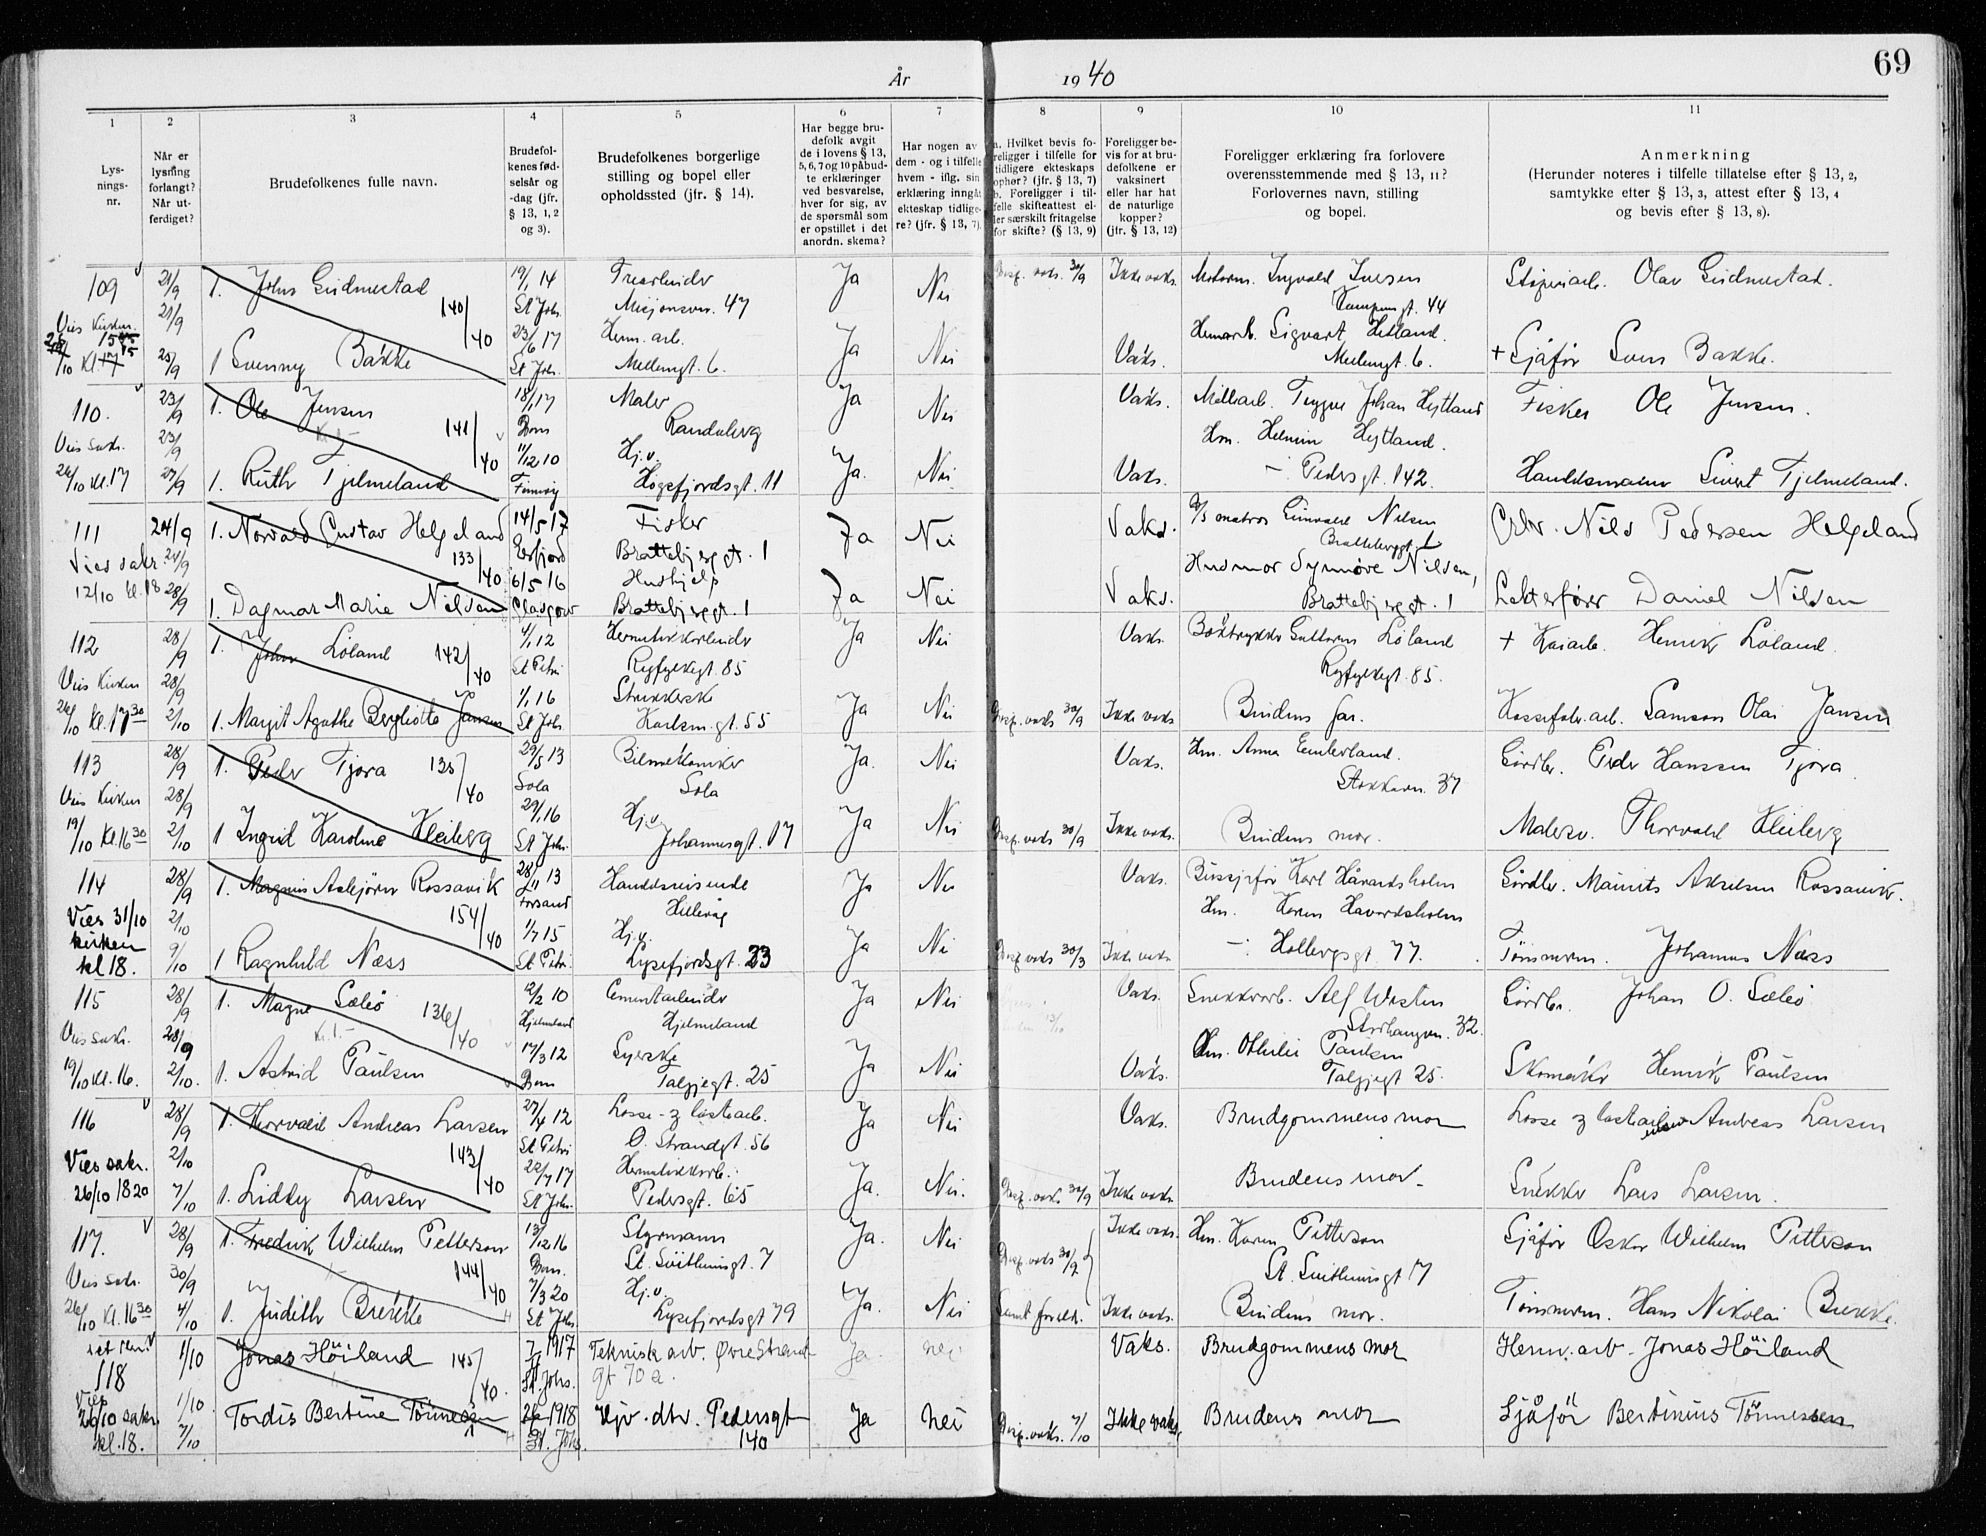 69
År 1940
1 2 3 4 5 6 7 8 9 10 11
Lys-
nings-
nr.
Når er
lysning
forlangt?
Når ut-
ferdiget?
Brudefolkenes fulle navn.
Brudefol-
kenes fød-
selsår og
-dag (jfr.
§ 13, 1, 2
og 3).
Brudefolkenes borgerlige
stilling og bopel eller
opholdssted (jfr. § 14).
Har begge bru-
defolk avgit
de i lovens § 13,
5, 6, 7 og 10 påbud-
te erklæringer
ved besvarelse,
hver for sig, av
de spørsmål som
er opstillet i det
anordn. skema?
Har nogen av
dem - og i tilfelle
hvem - iflg. sin
erklæring inngått
ekteskap tidlige-
re? (jfr. § 13, 7).
a. Hvilket bevis fo-
religger i tilfelle for
tidligere ekteskaps
ophør? (jfr. § 13, 7)
b. Foreligger i til-
felle skifteattest el-
ler særskilt fritagelse
for skifte? (§ 13, 9)
Foreligger be-
vis for at bru-
defolkene er
vaksinert
eller har hat
de naturlige
kopper?
(jfr. § 13, 12)
Foreligger erklæring fra forlovere
overensstemmende med § 13, 11?
Forlovernes navn, stilling
og bopel.
Anmerkning
(Herunder noteres i tilfelle tillatelse efter § 13, 2,
samtykke efter § 13, 3, attest efter § 13, 4
og bevis efter § 13, 8).
109 21/9 1. John Gudmestad 19/1 14 Trearbeider Ja Nei Disp. vaks. 30/9 Ikke vaks. Motorm. Ingvald Iversen Olav Gudmestad.
Vies Kirken 21/9 140/40 St Joh. Misjonsvn. 47
23/6 17 Herm. arb. Sigvart Hetland.
25/9 1 Svenny Bakke St Joh. Mellemgt. 6. Ja Nei Vaks. Mellemgt. 6. + Sjåfør Sven Bakke.
110. 23/9 1. Ole Jensen 18/1 17 Maler Ja Nei Vaks. Trygve Johan Hytland Fisker Ole Jensen.
Vies sakr. 23/9 141/40 Dom Randaberg Hm. Hytland.
11/12 10 Hj.v.
26/10 kl. 17 27/9 1. Ruth Tjelmeland Høgsfjordsgt. 11 Ja. Nei Vaks. Pedersgt. 142. Handelsmann Sivert Tjelmeland.
111 24/9 1. Norvald Gustav Helgeland 14/5 17 Fisker Ja Nei Vaks. matros Nilsen Nils Pedersen Helgeland
Vies sakr. 24/9 133/40 Erfjord Brattebjergt. 1
6/5 16 Hushjelp Husmor Synnøve Nilsen,
12/10 kl. 18 28/9 1. Dagmar Marie Nilsen Glasgow Brattebjergt. 1 Ja Nei Vaks. Brattebjergt. 1 Lekterfører Daniel Nilsen
112 28/9 1. John Løland 4/1 12 Hermetikkarbeider Ja Nei Vaks. Boktrykker Guttorm Løland + Kaiarb. Henrik Løland.
Vies Kirken 28/9 142/40 St Petri Ryfylkegt. 85 Ryfylkegt. 85.
1/1 16
26/10 kl. 17 30 2/10 1. Margit Agathe Bergliotte Jansen St Joh. Karlsm.gt. 55 Ja Nei Disp. vaks 30/9 Ikke vaks Brudens far. Samson Olai Jansen
113 28/9 1. Peder Tjora 135/40 29/5 13 Bilmekaniker Ja. Nei Vaks. Hm. Anna Gårdbr. Peder Hanssen Tjora
Vies Kirken 28/9 Sola Sola Stokkavn. 37
29/1 16 Hj.v.
19/10 kl. 16 30 2/10 1 Ingrid Karoline Kleiberg St Joh. Johannesgt. 17 Ja Nei Disp. vaks 30/9 Ikke vaks. Brudens mor. Malersv. Thorvald Kleiberg
114 28/9 1. Magnus Asbjørn Rossavik 28/11 13 Handelsreisende Ja Nei Vaks. Bussjåfør Karl Håvardsholm Gårdbr. Maurits Akselsen Rossavik.
Vies 31/10 2/10 154/40 Forsand Hillevåg Hm. Karen Havardsholm
kirken 1/7 15 Hj.v.
kl 18. 9/10 1 Ragnhild Næss St Petri Lysefjordsgt. 23 Ja Nei Disp. vaks 30/3 Ikke vaks 77. Tømmerm. Johannes Næss
115 28/9 1. Magne Sælø 12/2 10 Cementarbeider Ja Nei Vaks. Snekkerarb. Alf Gårdbr. Johan O. Sælø
Vies sakr. 28/9 136/40 Hjelmeland Hjelmeland Storhaugvn. 32.
17/3 12 Syerske Hm. Othilie Paulsen
19/10 kl. 16. 2/10. 1. Astrid Paulsen Dom Taljegt. 25 Ja Nei Vaks. Taljegt 25. Skomaker Henrik Paulsen
116 28/9 1. Thorvald Andreas Larsen 27/4 12 Losse- & lastearb. Ja Nei Vaks. Brudgommens mor Losse & lastearbeider Andreas Larsen
Vies sakr. 2/10 143/40 St Petri Ø. Strandgt. 56
22/7 17 Hermetikkarb.
26/10 18 20 7/10 1. Lidley Larsen St Joh. Pedersgt. 65 Ja. Nei. Disp. vaks 30/9 Ikke vaks. Brudens mor Snekker Lars Larsen.
117. 28/9 1. Fredrik Wilhelm Petterson 13/12 16 Styrmann Ja. Nei Disp. vaks 30/9 Ikke vaks. Hm. Karen Petterson Sjåfør Oskar Wilhelm Petterson
Vies sakr. 30/9 144/40 Dom. St. Svithunsgt. 7 St. Svithunsgt 7
7/3 20 Hj.v.
26/10 kl. 16 30 4/10 1. Judith Brekke St Joh. Lysefjordsgt 79 Ja. Nei Ikke vaks. Brudens mor. Tømmerm. Hans Nikolai Brekke.
118 1/10 Jonas Höiland 145/40. 1917 Teknisk arb. Øvre Strand- Ja nei Vaks. Brudgommens mor Herm. arb. Jonas Höiland
St. Johs. gt 70 a.
Vies 1/10
26/10 sakr. Tordis Bertine Tönnesen 1918 Hjv. dtr. Pedersgt Ja nei Disp. vaks. 7/10 Ikke vaks. Brudens mor Sjåför Bertinius Tönnessen
kl. 18. 7/10 St. Johs. 140